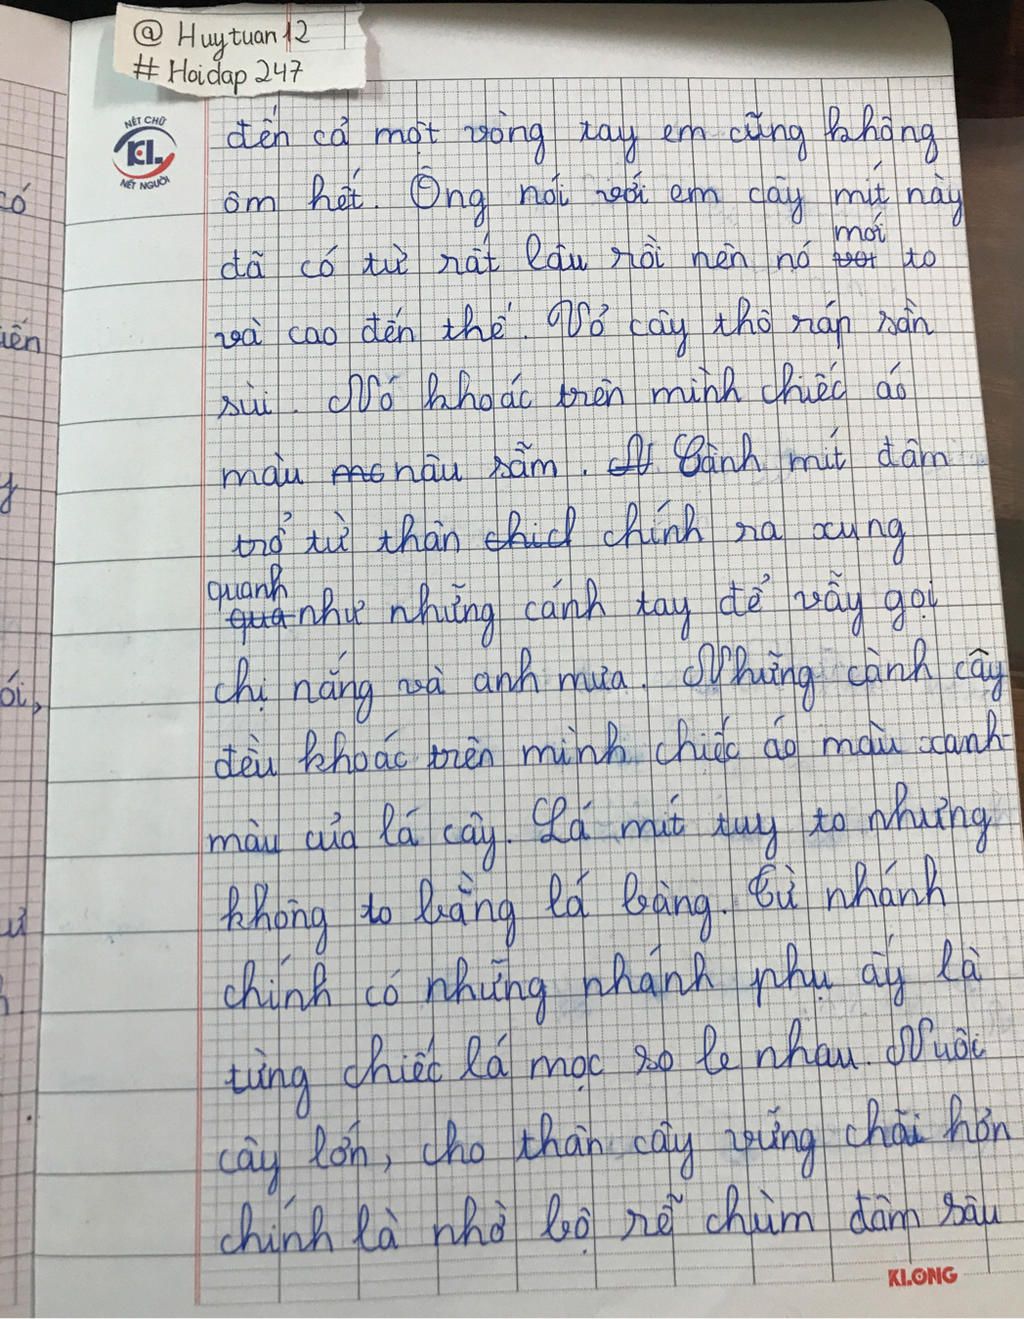 @ Huytuan12
# Hoidap 247
NÉT CHỮ
KL
NẾT NGƯỜI
đến cả một vòng tay em cũng không
ôm hết. Ông nói với em cây mít này
mới
đã có từ rất lâu rồi nên nó to
và cao đến thế. Vỏ cây thô ráp sần
sùi. Nó khoác trên mình chiếc áo
màu nâu sẫm. Cành mít đâm
trổ từ thân chính ra xung
quanh
như những cánh tay để vẫy gọi
chị nắng và anh mưa. Những cành cây
đều khoác trên mình chiếc áo màu xanh
màu của lá cây. Lá mít tuy to nhưng
không to bằng lá bàng. Từ nhánh
chính có những nhánh phụ ấy là
từng chiếc lá mọc so le nhau. Nuôi
cây lớn, cho thân cây vững chãi hơn
chính là nhờ bộ rễ chùm đâm sâu
KLONG
có
iến
y
ói,